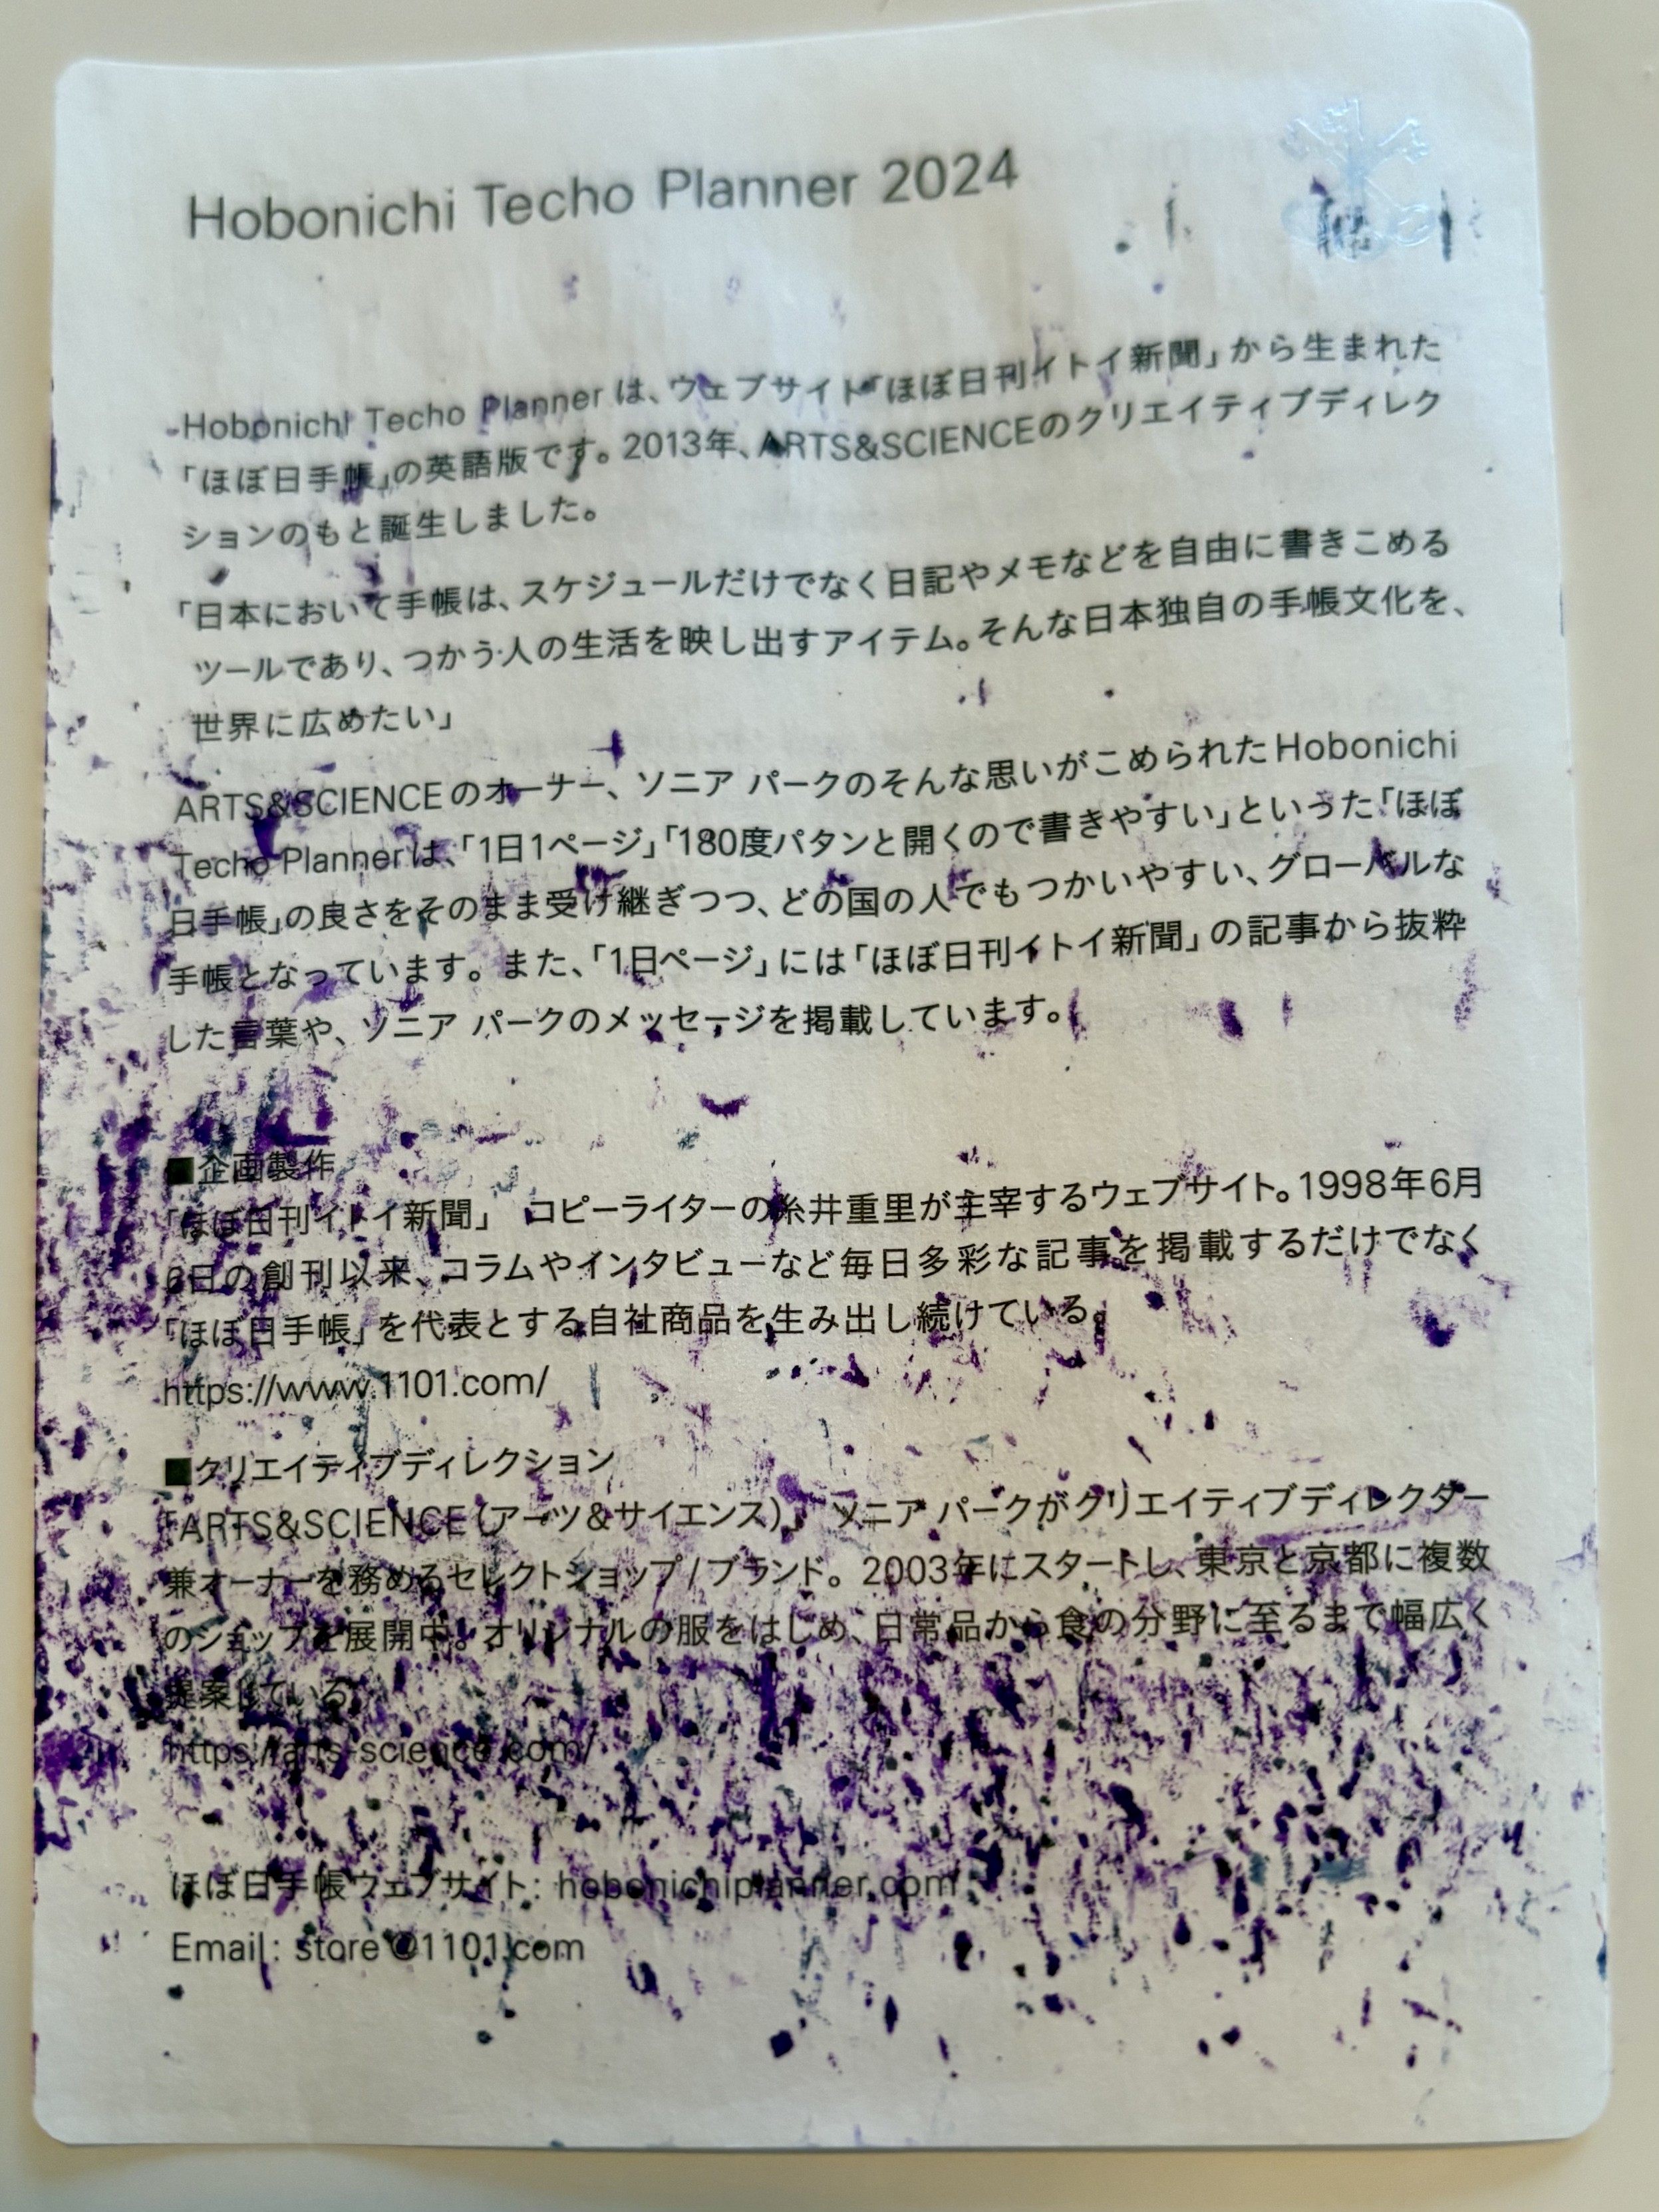 Hobonichi Techo Planner 2024
Hobonichi Techo Planner は、ウェブサイト「ほぼ日刊イトイ新聞」から生まれた
「ほぼ日手帳」の英語版です。2013年、ARTS&SCIENCEのクリエイティブディレク
ションのもと誕生しました。
「日本において手帳は、スケジュールだけでなく日記やメモなどを自由に書きこめる
ツールであり、つかう人の生活を映し出すアイテム。そんな日本独自の手帳文化を、
世界に広めたい」
ARTS&SCIENCEのオーナー、ソニア パークのそんな思いがこめられたHobonichi
Techo Plannerは、「1日1ページ」「180度パタンと開くので書きやすい」といった「ほぼ
日手帳」の良さをそのまま受け継ぎつつ、どの国の人でもつかいやすい、グローバルな
手帳となっています。また、「1日ページ」には「ほぼ日刊イトイ新聞」の記事から抜粋
した言葉や、ソニア パークのメッセージを掲載しています。
■企画製作
「ほぼ日刊イトイ新聞」 コピーライターの糸井重里が主宰するウェブサイト。1998年6月
6日の創刊以来、コラムやインタビューなど毎日多彩な記事を掲載するだけでなく
「ほぼ日手帳」を代表とする自社商品を生み出し続けている。
https://www.1101.com/
■クリエイティブディレクション
「ARTS&SCIENCE(アーツ&サイエンス)」 ソニア パークがクリエイティブディレクター
兼オーナーを務めるセレクトショップ/ブランド。2003年にスタートし、東京と京都に複数
のショップを展開中。オリジナルの服をはじめ、日常品から食の分野に至るまで幅広く
提案している。
https://arts-science.com/
ほぼ日手帳ウェブサイト: hobonichiplanner.com
Email: store@1101.com